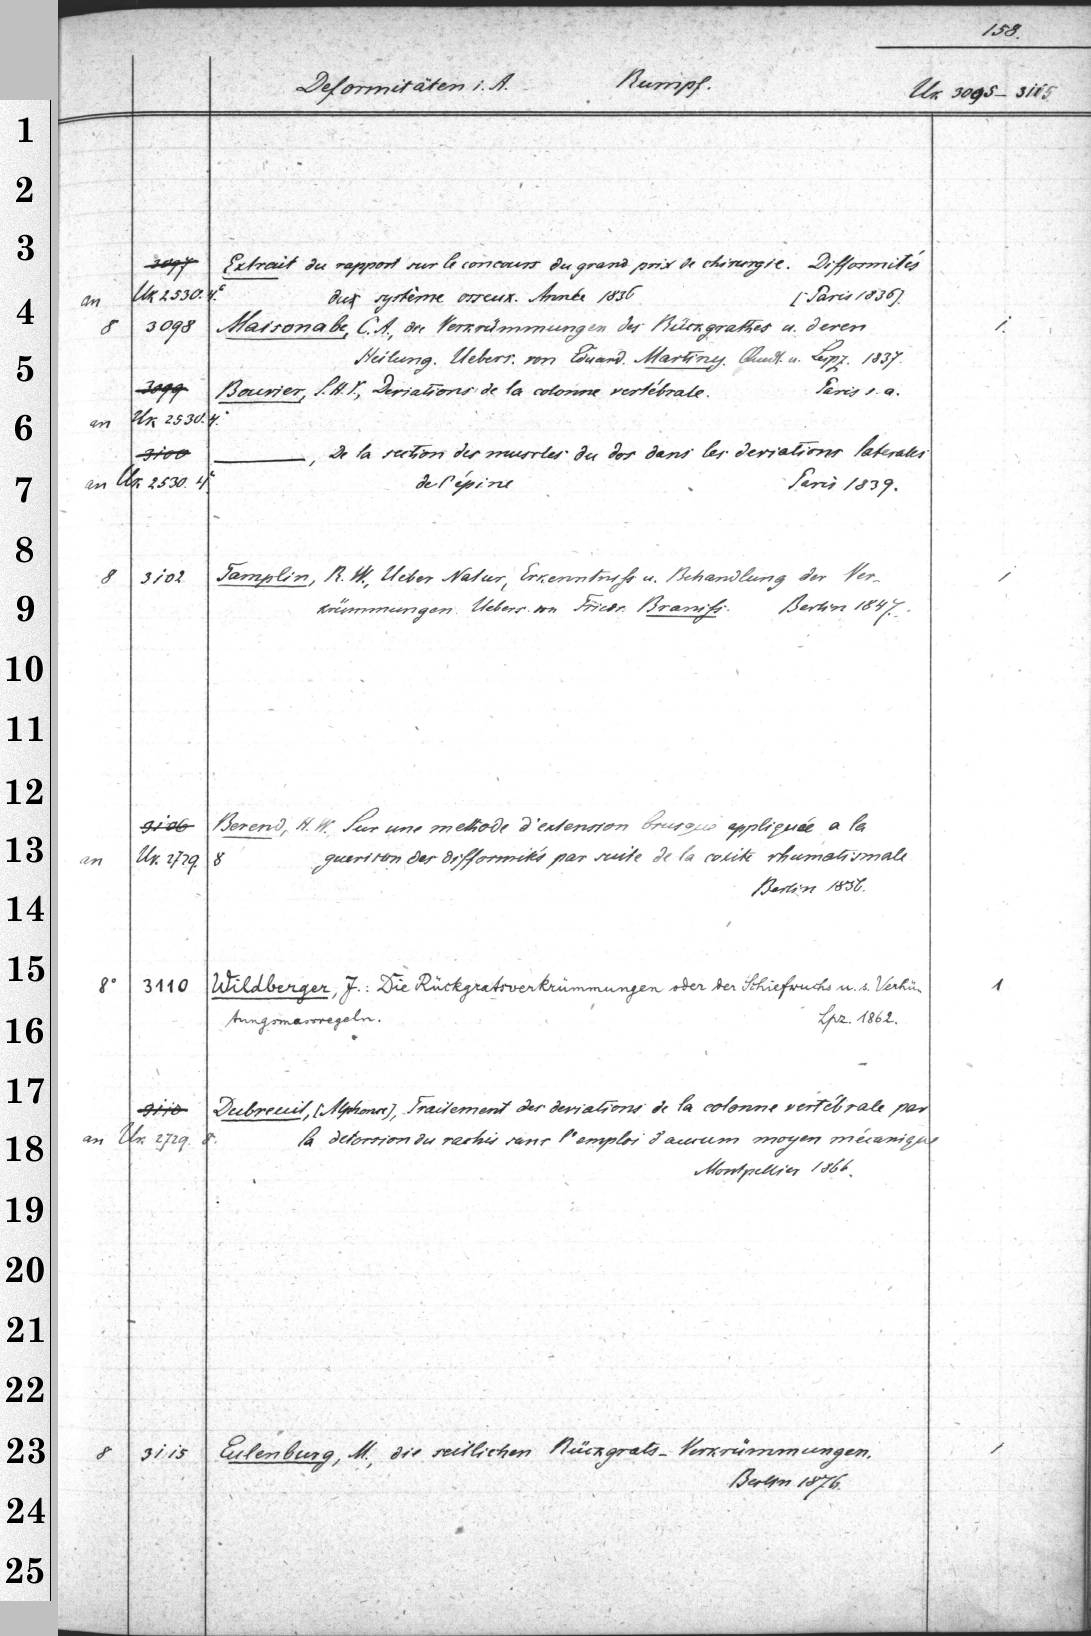 158.
Deformitäten i. A. Rumpf. Uk 3095-3115
3097 Extrait du rapport sur le concours du grand prix de chirurgie. Difformités
an Uk 2530. 4° du système osseux. Année 1836 [Paris 1836].
8 3098 Maisonabe, C. A., die Verkrümmungen des Rückgrathes u. deren 1.
Heilung. Uebers. von Eduard. Martiny. Quedl. u. Leipz. 1837.
3099 Bouvier, S. H. V., Deviations de la colonne vertébrale. Paris s. a.
an Uk 2530. 4.°
3100 ———, De la section des muscles du dos dans les deviations laterales
an Uk 2530. 4° de l'épine Paris 1839.
8 3102 Tamplin, R. W., Ueber Natur, Erkenntniss u. Behandlung der Ver- 1
krümmungen. Uebers. von Friedr. Braniss. Berlin 1847.
3106 Berend, H. W. Sur une methode d'extension brusque appliquée a la
an Uk 2729 8 guerison des difformités par suite de la coxite rhumatismale
Berlin 1856.
8° 3110 Wildberger, J.: Die Rückgratsverkrümmungen oder der Schiefwuchs u. s. Verhü- 1
tungsmassregeln. Lpz. 1862.
3110 Dubreuil, [Alphonse], Traitement des deviations de la colonne vertébrale par
an Uk 2729. 8°. la detorsion du rachis sans l'emploi d'aucum moyen mécanique
Montpellier 1866.
8 3115 Eulenburg, M., die seitlichen Rückgrats-Verkrümmungen. 1
Berlin 1876.
1
2
3
4
5
6
7
8
9
10
11
12
13
14
15
16
17
18
19
20
21
22
23
24
25